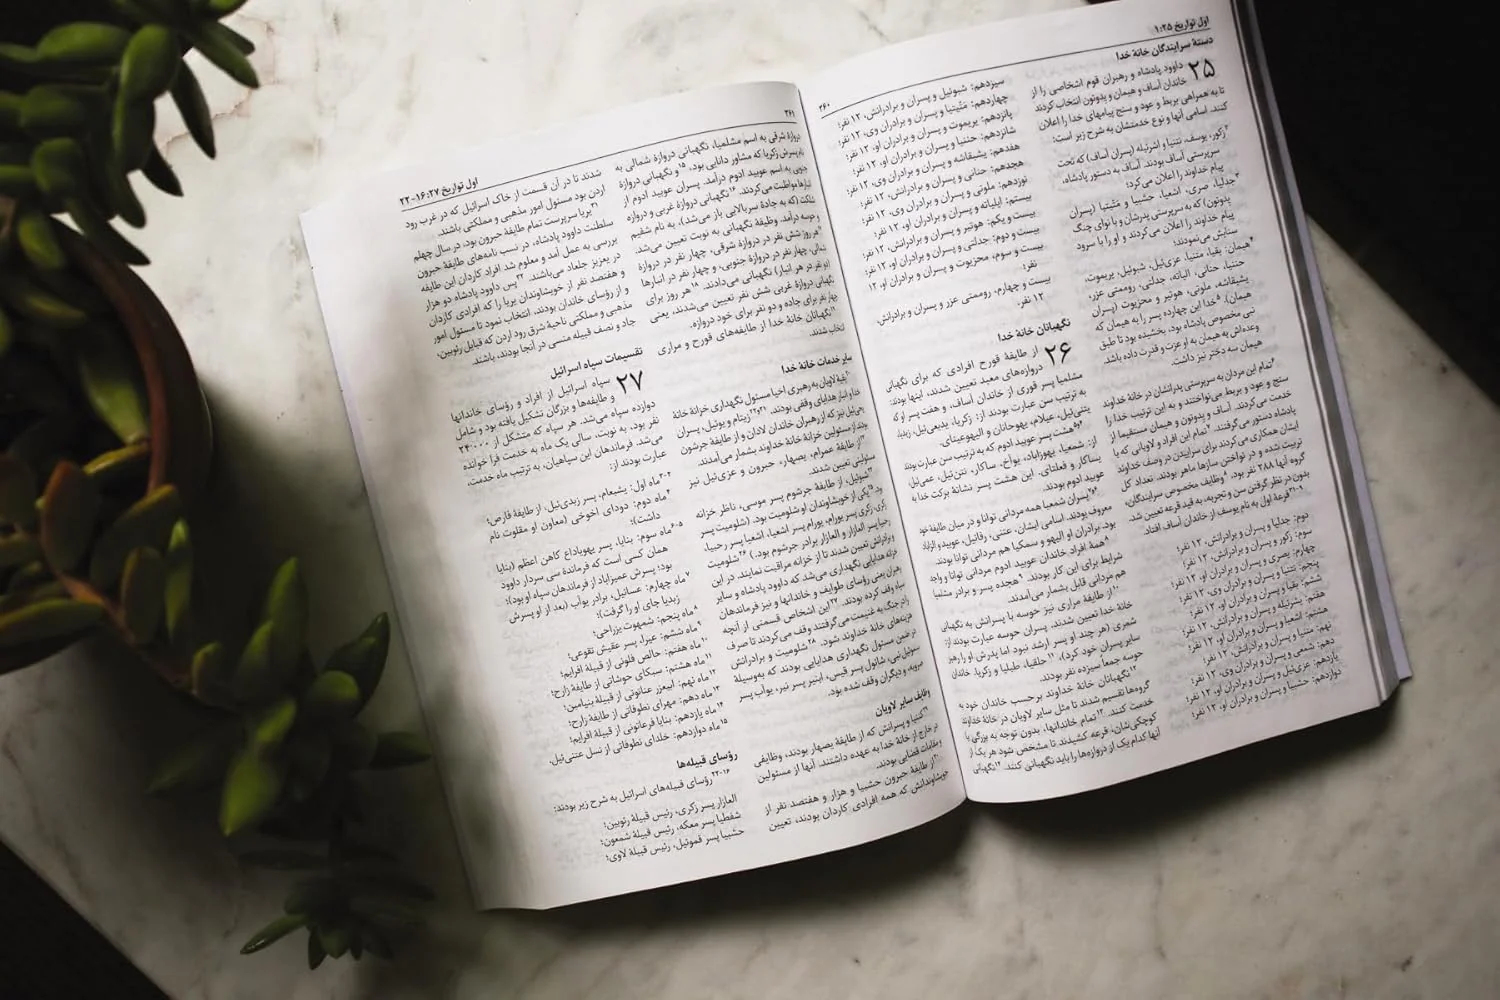 اول تواریخ ۱:۲۵
۳۶۰
دستهٔ سرایندگان خانهٔ خدا
۲۵ داوود پادشاه و رهبران قوم اشخاصی را از
خاندان آساف و هیمان و یدوتون انتخاب کردند
تا به همراهی بربط و عود و سنج پیامهای خدا را اعلان
کنند. اسامی آنها و نوع خدمتشان به شرح زیر است:
۲زکور، یوسف، نتنیا و اشرئیله (پسران آساف) که تحت
سرپرستی آساف بودند. آساف به دستور پادشاه،
پیام خداوند را اعلان می‌کرد؛
۳جدلیا، صری، اشعیا، حشبیا و متتیا (پسران
یدوتون) که به سرپرستی پدرشان و با نوای چنگ
پیام خداوند را اعلان می‌کردند و او را با سرود
ستایش می‌نمودند؛
۴هیمان: بقیا، متنیا، عزی‌ئیل، شبوئیل، یریموت،
حننیا، حنانی، الیاته، جدلتی، روممتی عزر،
یشبقاشه، ملوتی، هوتیر و محزیوت (پسران
هیمان). ۵خدا این چهارده پسر را به هیمان که
نبی مخصوص پادشاه بود، بخشیده بود تا طبق
وعده‌اش به هیمان به او عزت و قدرت داده باشد.
هیمان سه دختر نیز داشت.
۶تمام این مردان به سرپرستی پدرانشان در خانهٔ خداوند
سنج و عود و بربط می‌نواختند و به این ترتیب خدا را
خدمت می‌کردند. آساف و یدوتون و هیمان مستقیما از
پادشاه دستور می‌گرفتند. ۷تمام این افراد و لاویانی که با
ایشان همکاری می‌کردند برای سراییدن در وصف خداوند
تربیت شده و در نواختن سازها ماهر بودند. تعداد کل
گروه آنها ۲۸۸ نفر بود. ۸وظایف مخصوص سرایندگان،
بدون در نظر گرفتن سن و تجربه، به قید قرعه تعیین شد.
قرعهٔ اول به نام یوسف از خاندان آساف افتاد.
دوم: جدلیا و پسران و برادرانش، ۱۲ نفر؛
سوم: زکور و پسران و برادرانش، ۱۲ نفر؛
چهارم: یصری و پسران و برادران او، ۱۲ نفر؛
پنجم: نتنیا و پسران و برادران وی، ۱۲ نفر؛
ششم: بقیا و پسران و برادران او، ۱۲ نفر؛
هفتم: یشرئیله و پسران و برادران او، ۱۲ نفر؛
هشتم: اشعیا و پسران و برادران او، ۱۲ نفر؛
نهم: متنیا و پسران و برادرانش، ۱۲ نفر؛
دهم: شمعی و پسران و برادران وی، ۱۲ نفر؛
یازدهم: عزی‌ئیل و پسران و برادران او، ۱۲ نفر؛
دوازدهم: حشبیا و پسران و برادرانش، ۱۲ نفر؛
سیزدهم: شبوئیل و پسران و برادرانش، ۱۲ نفر؛
چهاردهم: متتیا و پسران و برادران وی، ۱۲ نفر؛
پانزدهم: یریموت و پسران و برادران او، ۱۲ نفر؛
شانزدهم: حننیا و پسران و برادران او، ۱۲ نفر؛
هفدهم: یشبقاشه و پسران و برادران وی، ۱۲ نفر؛
هجدهم: حنانی و پسران و برادرانش، ۱۲ نفر؛
نوزدهم: ملوتی و پسران و برادران وی، ۱۲ نفر؛
بیستم: ایلیاته و پسران و برادران او، ۱۲ نفر؛
بیست و یکم: هوتیر و پسران و برادرانش، ۱۲ نفر؛
بیست و دوم: جدلتی و پسران و برادران او، ۱۲ نفر؛
بیست و سوم، محزیوت و پسران و برادران او، ۱۲
نفر؛
بیست و چهارم، روممتی عزر و پسران و برادرانش،
۱۲ نفر.
نگهبانان خانهٔ خدا
۲۶ از طایفهٔ قورح افرادی که برای نگهبانی
دروازه‌های معبد تعیین شدند، اینها بودند:
مشلمیا پسر قوری از خاندان آساف، و هفت پسر او که
به ترتیب سن عبارت بودند از: زکریا، یدیعی‌ئیل، زبدیا،
یتنی‌ئیل، عیلام، یهوحانان و الیهوعینای.
هشت پسر عوبید ادوم که به ترتیب سن عبارت بودند
از: شمعیا، یهوزاباد، یوآخ، ساکار، نتن‌ئیل، عمی‌ئیل،
یساکار و فعلتای. این هشت پسر نشانهٔ برکت خدا به
عوبید ادوم بودند.
پسران شمعیا همه مردانی توانا و در میان طایفهٔ خود
معروف بودند. اسامی ایشان، عتنی، رفائیل، عوبید و الزاباد
بود. برادران او الیهو و سمکیا هم مردانی توانا بودند.
۸همهٔ افراد خاندان عوبید ادوم مردانی توانا و واجد
شرایط برای این کار بودند. ۹هجده پسر و برادر مشلمیا
هم مردانی قابل بشمار می‌آمدند.
۱۰از طایفهٔ مراری نیز حوسه با پسرانش به نگهبانی
خانهٔ خدا تعیین شدند. پسران حوسه عبارت بودند از:
شمری (هر چند او پسر ارشد نبود اما پدرش او را رهبر
سایر پسران خود کرد)، ۱۱حلقیا، طبلیا و زکریا. خاندان
حوسه جمعاً سیزده نفر بودند.
۱۲نگهبانان خانهٔ خداوند برحسب خاندان خود به
گروه‌ها تقسیم شدند تا مثل سایر لاویان در خانهٔ خداوند
خدمت کنند. ۱۳تمام خاندانها، بدون توجه به بزرگی یا
کوچکی‌شان، قرعه کشیدند تا مشخص شود هر یک از
آنها کدام یک از دروازه‌ها را باید نگهبانی کنند. ۱۴نگهبانی
۳۶۱
اول تواریخ ۱۶:۲۷-۲۲
دروازهٔ شرقی به اسم مشلمیا، نگهبانی دروازهٔ شمالی به
نام پسرش زکریا که مشاور دانایی بود، ۱۵و نگهبانی دروازهٔ
جنوبی به اسم عوبید ادوم درآمد. پسران عوبید ادوم از
انبارها مواظبت می‌کردند. ۱۶نگهبانی دروازهٔ غربی و دروازه
شلکت (که به جادهٔ سربالایی باز می‌شد)، به نام شفیم
و حوسه درآمد. وظیفهٔ نگهبانی به نوبت تعیین می‌شد.
۱۷هر روز شش نفر در دروازهٔ شرقی، چهار نفر در دروازهٔ
شمالی، چهار نفر در دروازهٔ جنوبی، و چهار نفر در انبارها
(دو نفر در هر انبار) نگهبانی می‌دادند. ۱۸هر روز برای
نگهبانی دروازهٔ غربی شش نفر تعیین می‌شدند، یعنی
چهار نفر برای جاده و دو نفر برای خود دروازه.
۱۹نگهبانان خانهٔ خدا از طایفه‌های قورح و مراری
انتخاب شدند.
سایر خدمات خانهٔ خدا
۲۰بقیهٔ لاویان به رهبری اخیا مسئول نگهداری خزانهٔ خانهٔ
خدا و انبار هدایای وقفی بودند. زیتام و یوئیل، پسران
یحی‌ئیل نیز که از رهبران خاندان لادان و از طایفهٔ جرشون
بودند از مسئولین خزانهٔ خانهٔ خداوند بشمار می‌آمدند.
۲۳از طایفهٔ عمرام، یصهار، حبرون و عزی‌ئیل نیز
مسئولینی تعیین شدند.
۲۴شبوئیل، از طایفهٔ جرشوم پسر موسی، ناظر خزانه
بود. ۲۵یکی از خویشاوندان او شلومیت بود. (شلومیت پسر
زکری، زکری پسر یورام، یورام پسر اشعیا، اشعیا پسر رحبیا،
رحبیا پسر العازار و العازار برادر جرشوم بود.) ۲۶شلومیت
و برادرانش تعیین شدند تا از خزانه مراقبت نمایند. در این
خزانه هدایایی نگهداری می‌شد که داوود پادشاه و سایر
رهبران یعنی رؤسای طوایف و خاندانها و نیز فرماندهان
سپاه وقف کرده بودند. ۲۷این اشخاص قسمتی از آنچه
را در جنگ به غنیمت می‌گرفتند وقف می‌کردند تا صرف
هزینه‌های خانهٔ خداوند شود. ۲۸شلومیت و برادرانش
در ضمن مسئول نگهداری هدایایی بودند که به‌وسیلهٔ
سموئیل نبی، شائول پسر قیس، ابنیر پسر نیر، یوآب پسر
صرویه و دیگران وقف شده بود.
وظایف سایر لاویان
۲۹کننیا و پسرانش که از طایفهٔ یصهار بودند، وظایفی
در خارج از خانهٔ خدا به عهده داشتند. آنها از مسئولین
و مقامات قضایی بودند.
۳۰از طایفهٔ حبرون حشبیا و هزار و هفتصد نفر از
خویشاوندانش که همه افرادی کاردان بودند، تعیین
شدند تا در آن قسمت از خاک اسرائیل که در غرب رود
اردن بود مسئول امور مذهبی و مملکتی باشند.
۳۱یریا سرپرست تمام طایفهٔ حبرون بود. در سال چهلم
سلطنت داوود پادشاه، در نسب نامه‌های طایفهٔ حبرون
بررسی به عمل آمد و معلوم شد افراد کاردان این طایفه
در یعزیر جلعاد می‌باشند. ۳۲پس داوود پادشاه دو هزار
و هفتصد نفر از خویشاوندان یریا را که افرادی کاردان
و از رؤسای خاندان بودند، انتخاب نمود تا مسئول امور
مذهبی و مملکتی ناحیهٔ شرق رود اردن که قبایل رئوبین،
جاد و نصف قبیله منسی در آنجا بودند، باشند.
تقسیمات سپاه اسرائیل
۲۷ سپاه اسرائیل از افراد و رؤسای خاندانها
و طایفه‌ها و بزرگان تشکیل یافته بود و شامل
دوازده سپاه می‌شد. هر سپاه که متشکل از ۲۴۰۰۰
نفر بود، به نوبت، سالی یک ماه به خدمت فرا خوانده
می‌شد. فرماندهان این سپاهیان، به ترتیب ماه خدمت،
عبارت بودند از:
۲-۳ماه اول: یشبعام، پسر زبدی‌ئیل، از طایفهٔ فارص؛
۴ماه دوم: دودای اخوخی (معاون او مقلوت نام
داشت)؛
۵-۶ماه سوم: بنایا، پسر یهویاداع کاهن اعظم (بنایا
همان کسی است که فرماندهٔ سی سردار داوود
بود؛ پسرش عمیزاباد از فرماندهان سپاه او بود)؛
۷ماه چهارم: عسائیل، برادر یوآب (بعد از او پسرش
زبدیا جای او را گرفت)؛
۸ماه پنجم: شمهوت یزراحی؛
۹ماه ششم: عیرا، پسر عقیش تقوعی؛
۱۰ماه هفتم: حالص فلونی از قبیلهٔ افرایم؛
۱۱ماه هشتم: سبکای حوشاتی از طایفهٔ زارح؛
۱۲ماه نهم: ابیعزر عناتوتی از قبیلهٔ بنیامین؛
۱۳ماه دهم: مهرای نطوفاتی از طایفهٔ زارح؛
۱۴ماه یازدهم: بنایا فرعاتونی از قبیلهٔ افرایم؛
۱۵ماه دوازدهم: خلدای نطوفاتی از نسل عتنی‌ئیل.
رؤسای قبیله‌ها
۱۶-۲۲رؤسای قبیله‌های اسرائیل به شرح زیر بودند:
العازار پسر زکری، رئیس قبیلهٔ رئوبین؛
شفطیا پسر معکه، رئیس قبیلهٔ شمعون؛
حشبیا پسر قموئیل، رئیس قبیلهٔ لاوی؛